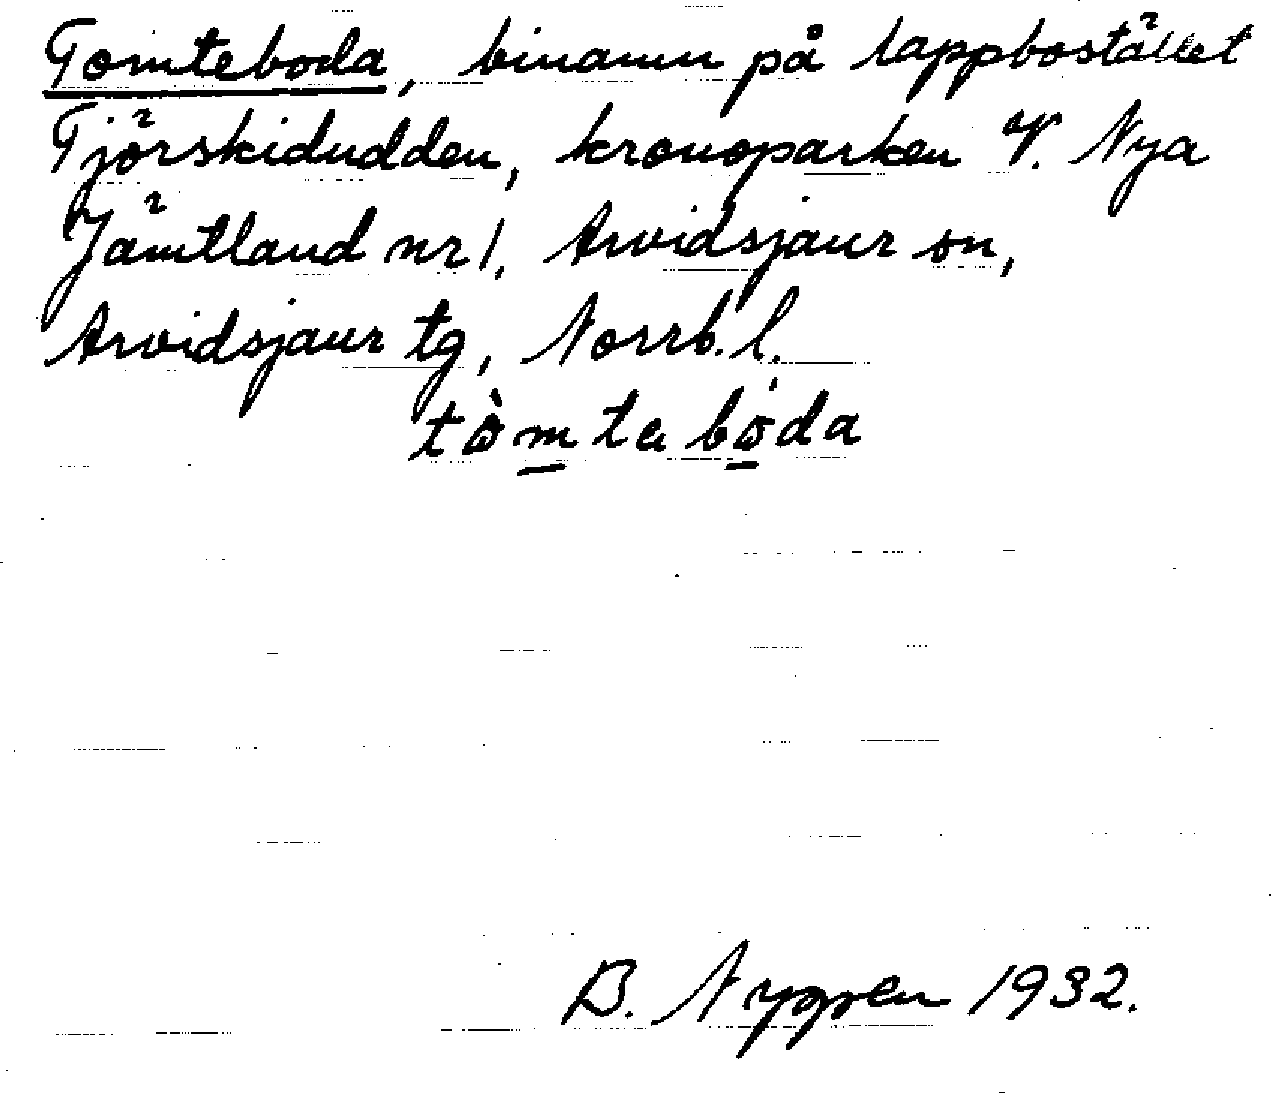 Tomteboda, binamn på lappbostället
Tjörskidudden, kronoparken V. Nya
Jämtland nr 1, Arvidsjaur sn,
Arvidsjaur tg, Norrb. l.
tòmta bo̍da
B. Nygren 1932.